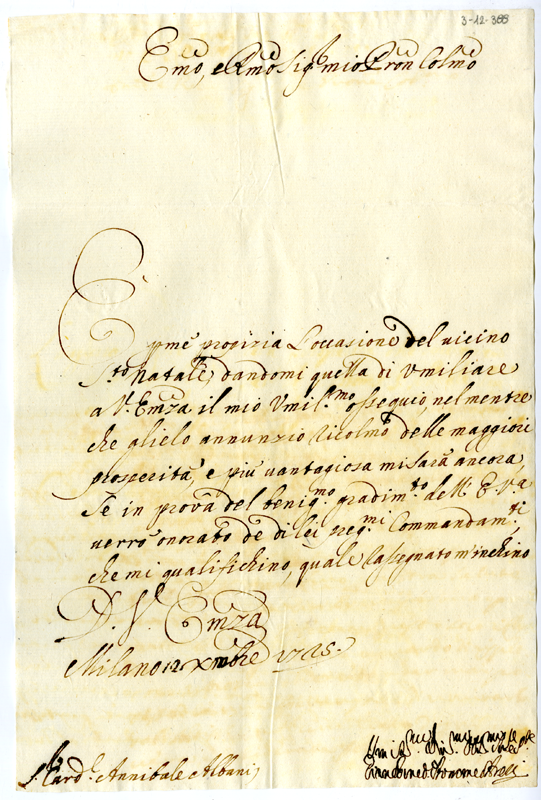 3-12-355
Emõ, e Rmõ Sig.r mio Pron Colmõ
E' p me propizia L'occasione del vicino
S.to Natale, dandomi quella di Umiliare
a V. Emza il mio Umil.mo ossequio, nel mentre
che glielo annunzio Ricolmo delle maggiori
prosperità, e più vantagiosa mi sarà ancora,
Se in prova del benig.mo gradim.to de V. E.za
verrò onorato de di lei preg.mi Commandam.ti,
che mi qualifichino, quale rassegnato m'inchino
D. V. Emza
Milano 12 Xmbre 1725.
S. Card.l Annibale Albani